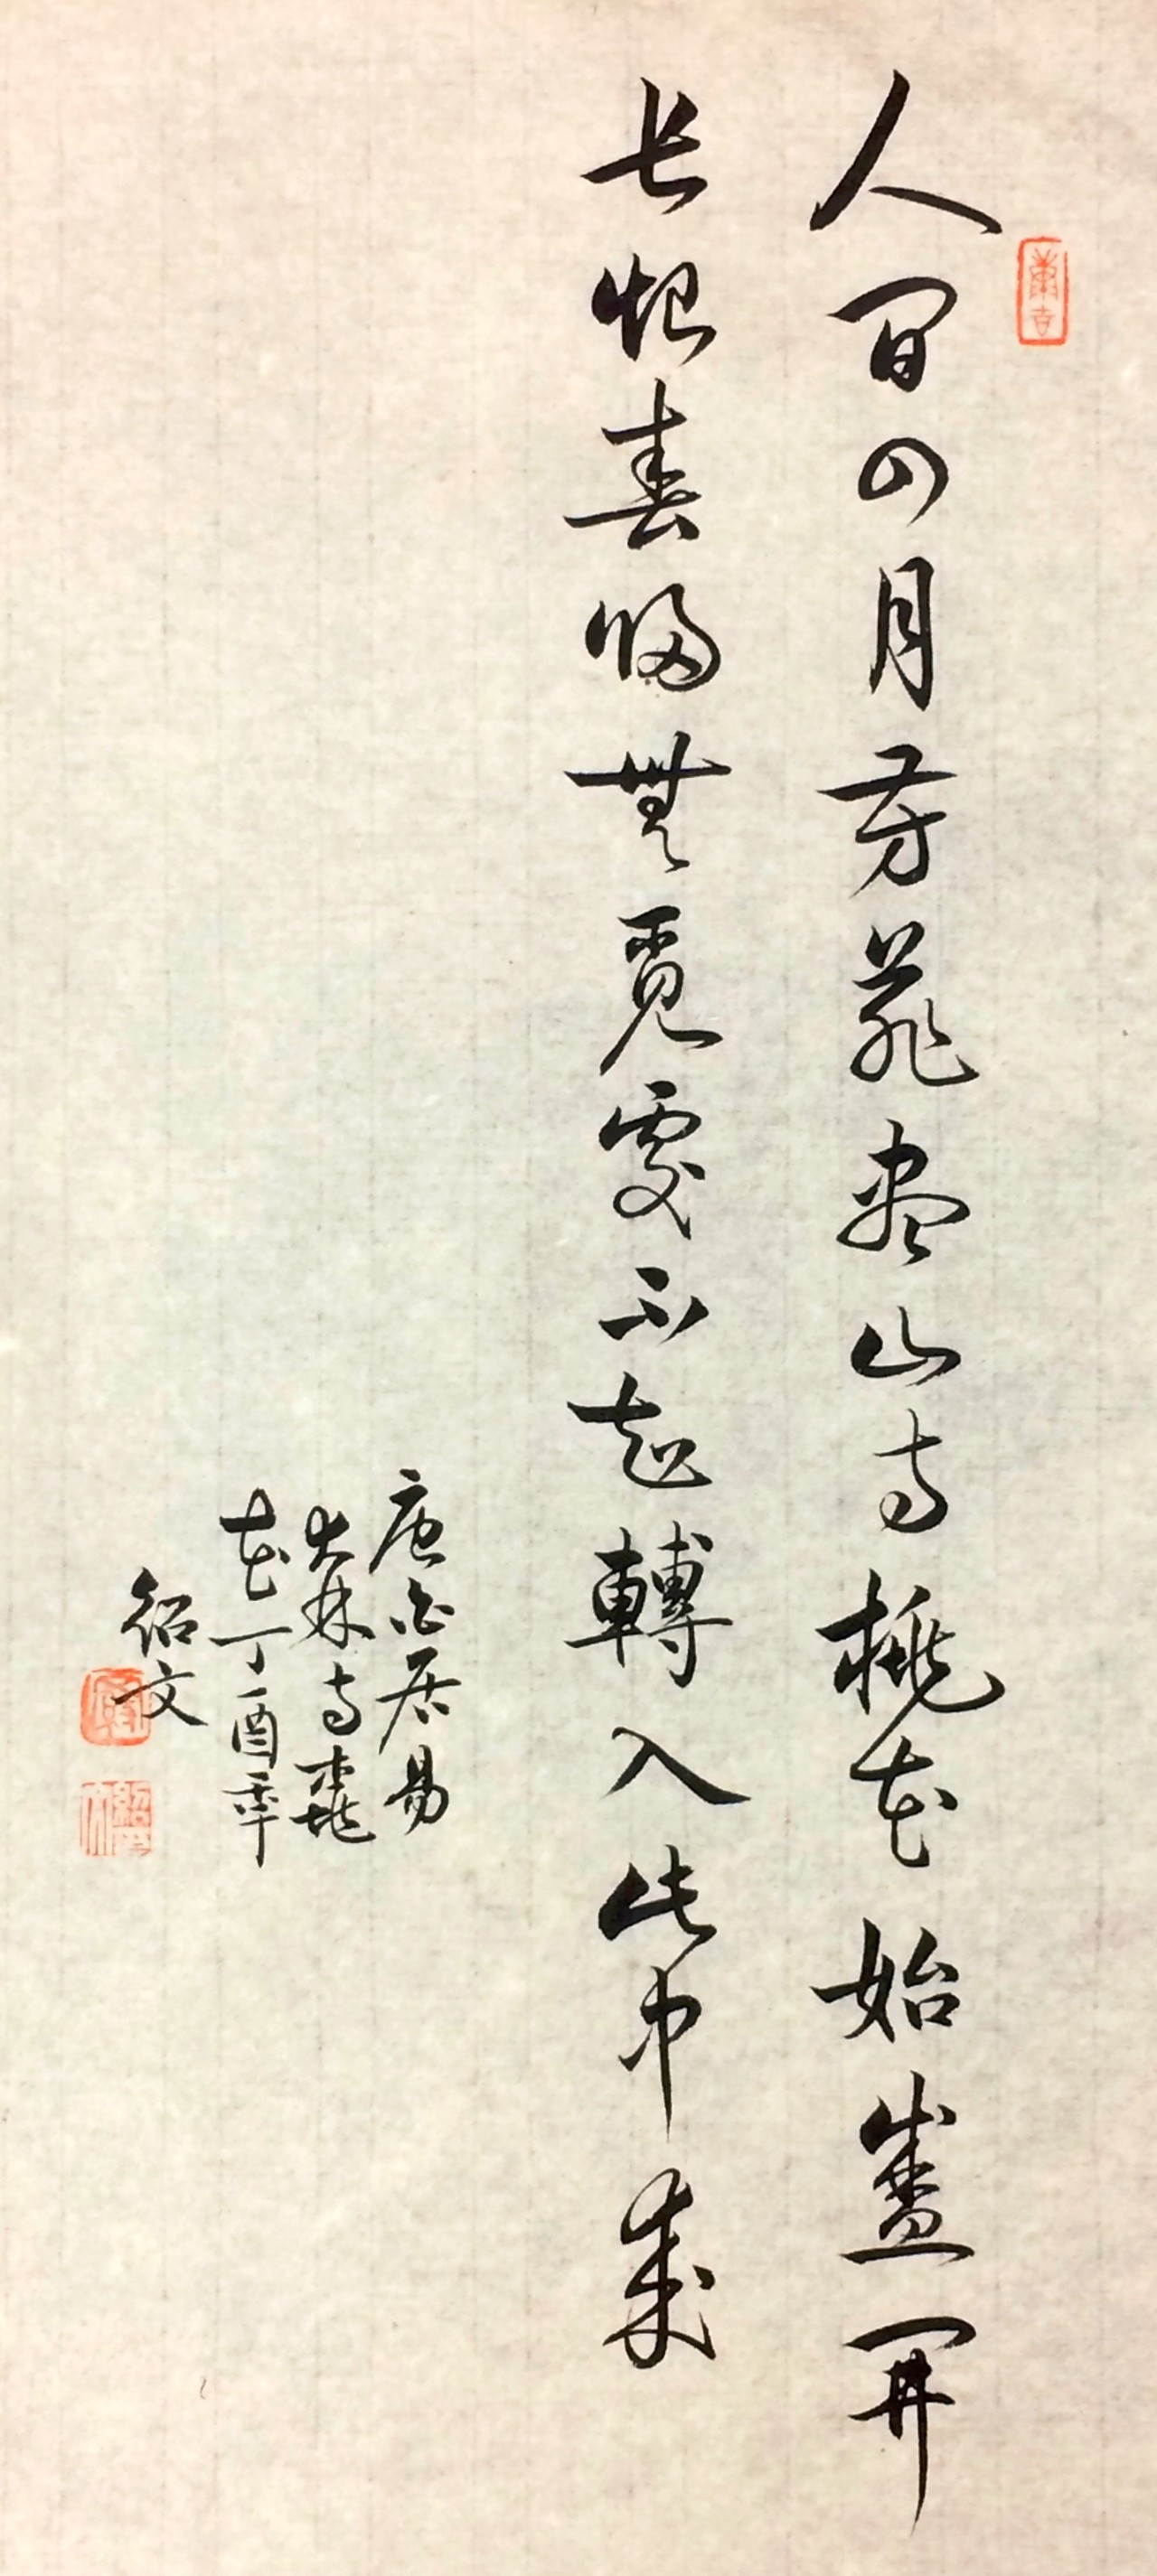 人間四月芳菲盡山寺桃花始盛開
長恨春歸無覓處不知轉入此中來
唐白居易
大林寺桃
花丁酉年
紹文